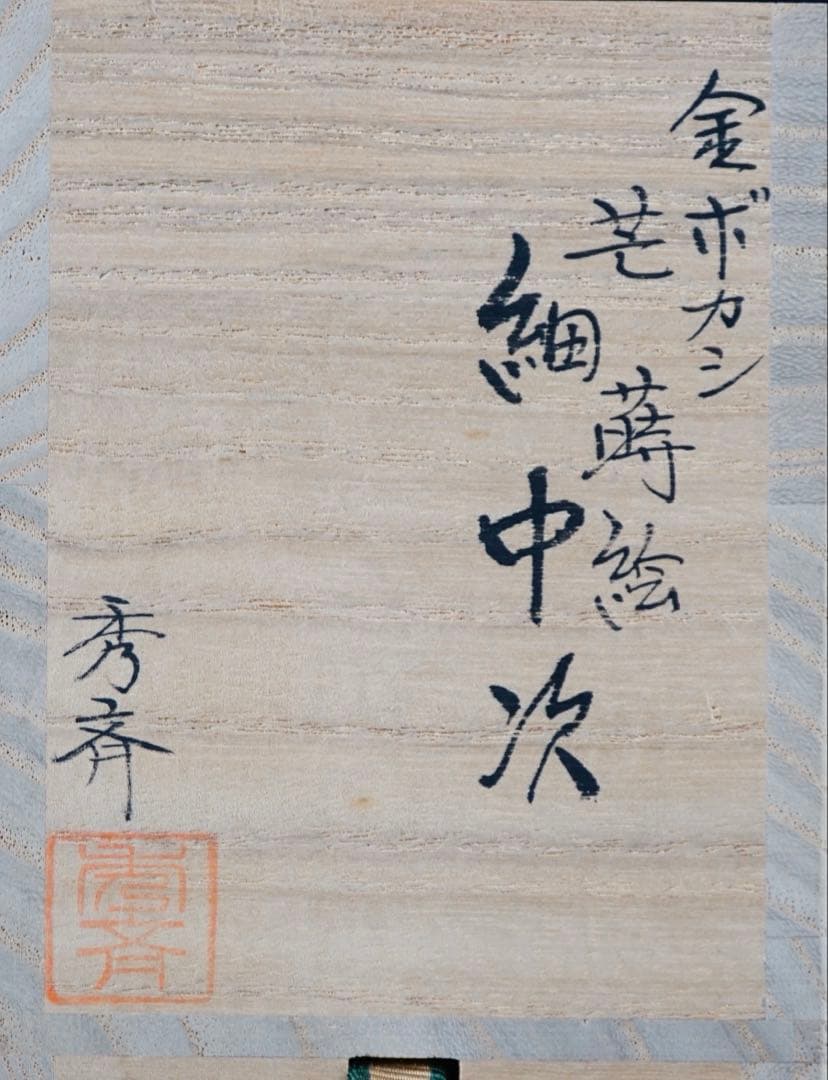 金ボカシ
芒蒔絵
細中次
秀斉